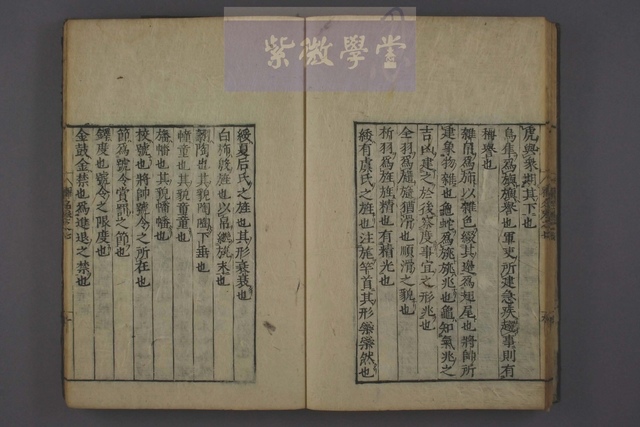 紫微學堂
虎與衆期其下也
鳥隼為旟旟譽也軍吏所建急疾趨事則有
稱譽也
雜帛為旆以雜色綴其邊為翅尾也將帥所
建象物雜也龜蛇為旐旐兆也龜知氣兆之
吉凶建之於後察度事宜之形兆也
全羽為旞旞猶滑也順滑之貌也
析羽為旌旌精也有精光也
綏有虞氏之旌也注旄竿首其形㷼㷼然也
綏夏后氏之旌也其形衰衰也
白旆殷旌也以帛繼旐末也
翿陶也其貌陶陶下垂也
幢童也其貌童童也
旛幡也其貌幡幡也
校號也將帥號令之所在也
節為號令賞罰之節也
鐸度也號令之限度也
金鼓金禁也為進退之禁也